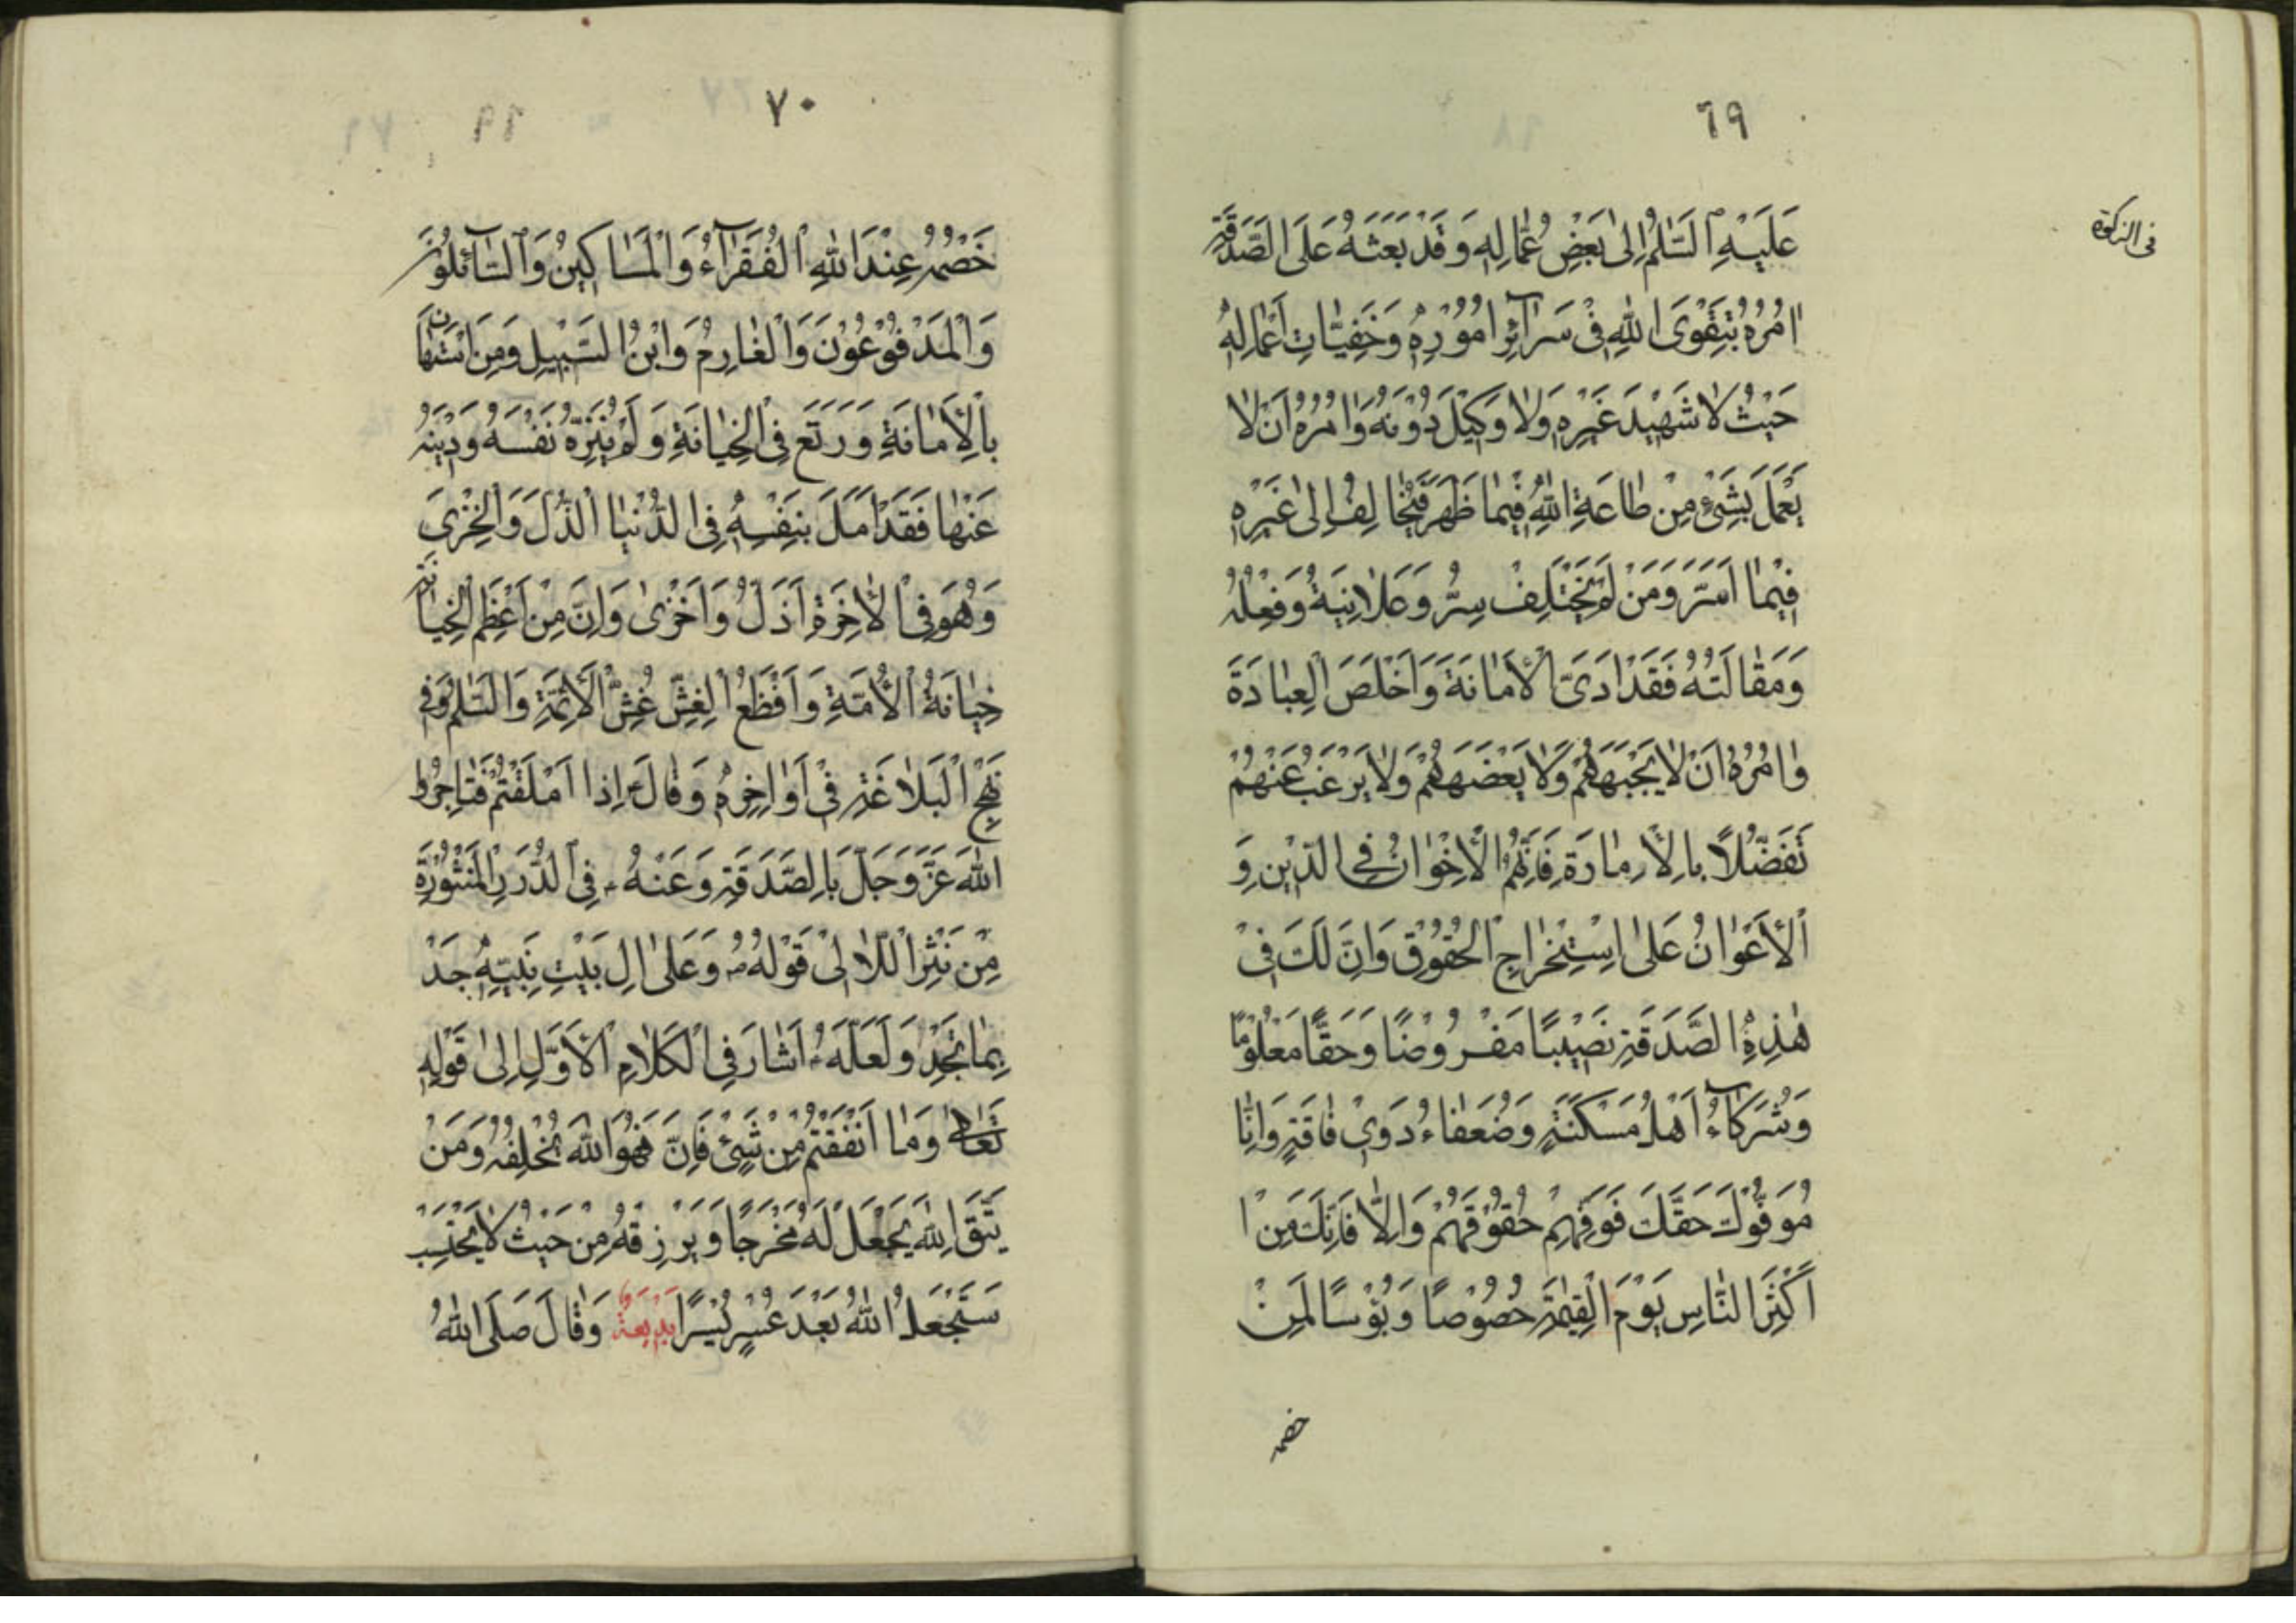 ٦٩
فى الزكوة
عَلَيْهِ ٱلسَّلٰمُ اِلىٰ بَعْضِ عُمّٰالِهِ وَقَدْ بَعَثَهُ عَلَى الصَّدَقَةِ
اٰمُرُهُ بِتَقْوَى اللّٰهِ فى سَرآئِرِ اُمُوُرِهِ وَخَفِيّٰاتِ اَعْمٰالِهِ
حَيْثُ لاٰ شَهيٖدَ غَيْرِهِ وَلاٰ وَكيٖلَ دُونَهُ وَاٰمُرُهُ اَنْ لاٰ
يَعْمَلَ بِشَىْءٍ مِنْ طٰاعَةِ اللّٰهِ فيٖمٰا ظَهَرَ فَيُخٰالِفُ اِلىٰ غَيْرِهِ
فيٖمٰا اَسَرَّ وَمَنْ لَمْ يَخْتَلِفْ سِرُّ وَعَلاٰنِيَةُ وَفِعْلُهُ
وَمَقٰالَتُهُ فَقَدْ اَدَىَّ الْاَمٰانَةَ وَاَخْلَصَ الْعِبٰادَةَ
وٰامُرُهُ اَنْ لاٰ يَجْبَهَهُمْ وَلاٰ يَعْضَهَهُمْ وَلاٰ يَرْغَبُ عَنْهُمْ
تَفَضُّلاً بِالْاِمٰارَةِ فَاِنَّهُمُ الْاِخْوٰانُ فِى الدّيٖنِ وَ
الْاَعْوٰانُ عَلىٰ اسْتِخْرٰاجِ الْحُقُوْقِ وَاِنَّ لَكَ فىٖ
هٰذِهِ الصَّدَقَةِ نَصيٖبًا مَفْرُوضًا وَحَقًّا مَعْلُومًا
وَشُرَكآءُ اَهْلُ مَسْكَنَةٍ وَضُعَفٰاءُ دَوىٖ فٰاقَةٍ وَاِنّٰا
مُوَفُّوْكَ حَقَّكَ فَوَفِّهِمْ حُقُوْقَهُمْ وَاِلاّٰ فَاِنَّكَ مِنْ ا
اَكْثَرِ النّٰاسِ يَوْمَ الْقِيٰمَةِ خُصُوْصًا وَبُؤْسًا لِمَنْ
خصمه
٧٠
خَصْمُهُ عِنْدَ اللّٰهِ الْفُقَرآءُ وَالْمَسٰاكيٖنُ وَٱلسّٰآئِلُونَ
وَالْمَدْفُوْعُوْنَ وَالْغٰارِمُ وَابْنُ السَّبيٖلِ وَمَنِ اسْتَهٰانَ
بِالْاَمٰانَةِ وَرَتَعَ فِى الْخِيٰانَةِ وَلَمْ يُنَزِّهْ نَفْسَهُ وَديٖنَهُ
عَنْهٰا فَقَدْ اَمَلَ بِنَفْسِهِ فِى الدُّنْيٰا الذُّلَ وَالْخِزْىَ
وَهُوَ فِى الْاٰخِرَةِ اَذَلُ وَاَخْزىٰ وَاِنَّ مِنْ اَعْظَمِ الْخِيٰانَةِ
خِيٰانَةُ الْاُمَّةِ وَاَفْظَعُ الْغِشِّ غُشِّ الْاَئِمَّةِ وَالسَّلٰمُ وَفى
نَهْجِ الْبَلاٰغَةِ فى اَوٰاخِرِهِ وَقٰالَ ع اِذٰا اَمْلَقْتُمْ فَتٰاجِرُوا
اللّٰهَ عَزَّ وَجَلَّ بِالصَّدَقَةِ وَعَنْهُ فِى الدُّرَرِ الْمَنْثُوْرَةِ
مِنْ نَثْرِ اللَّاٰلىٖ قَوْلُهُ وَعَلىٰ اٰلِ بَيْتِ نَبِيِّهِ جَدْ
بِمٰا تَجِدْ وَلَعَلَّهُ اَشٰارَ فِى الْكَلاٰمِ الْاَوَّلِ اِلىٰ قَوْلِهِ
تَعٰالىٰ وَمٰا اَنْفَقْتُمْ مِنْ شَىْءٍ فَاِنَّ فَهُوَ اللّٰهَ يُخْلِفُهُ وَمَنْ
يَتَّقِ اللّٰهَ يَجْعَلْ لَهُ مَخْرَجًا وَيَرْزِقْهُ مِنْ حَيْثُ لاٰ يَحْتَسِبُ
سَيَجْعَلُ اللّٰهُ بَعْدَ عُسْرٍ يُسْرًا بَديٖعَةٌ وَقٰالَ صَلَّى اللّٰهُ